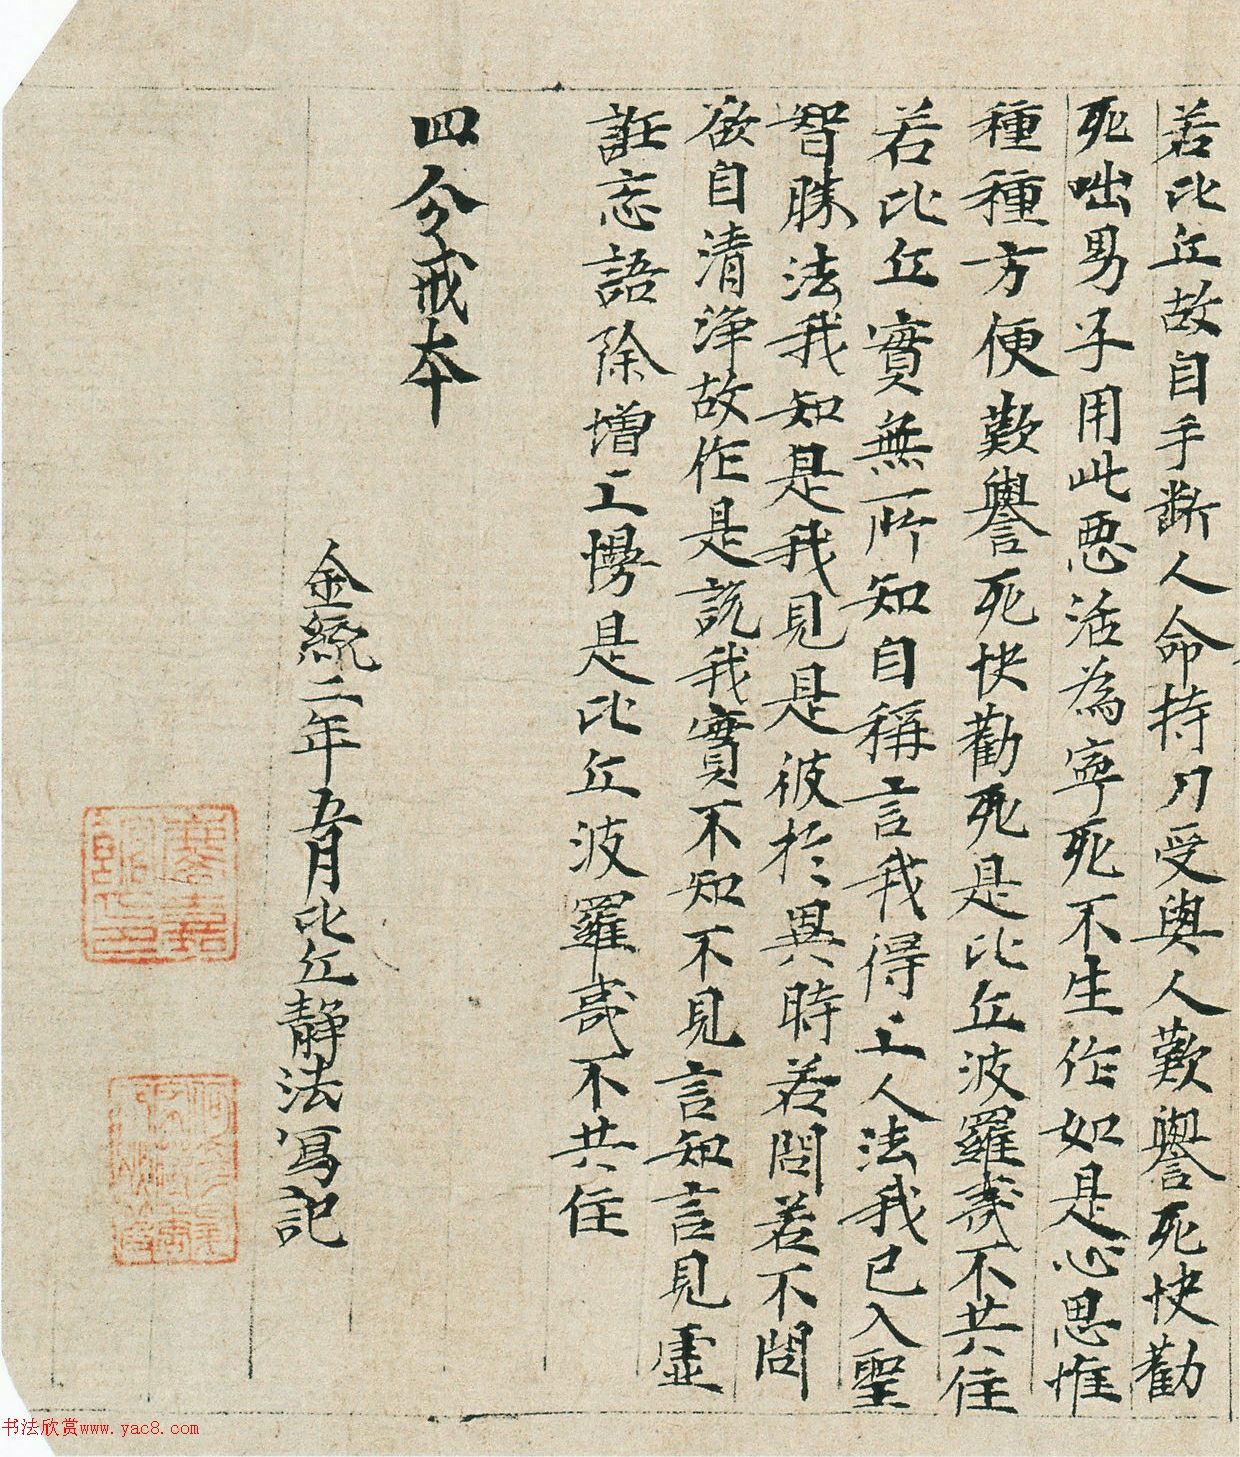 若比丘故自手斷人命持刀受與人歎譽死快勸
死咄男子用此惡活為寧死不生作如是心思惟
種種方便歎譽死快勸死是比丘波羅夷不共住
若比丘實無所知自稱言我得上人法我已入聖
智勝法我知是我見是彼於異時若問若不問
欲自清淨故作是說我實不知不見言知言見虛
誑忘語除增上慢是比丘波羅夷不共住
四分戒本
金統二年五月比丘靜法寫記
书法欣赏www.yac8.com